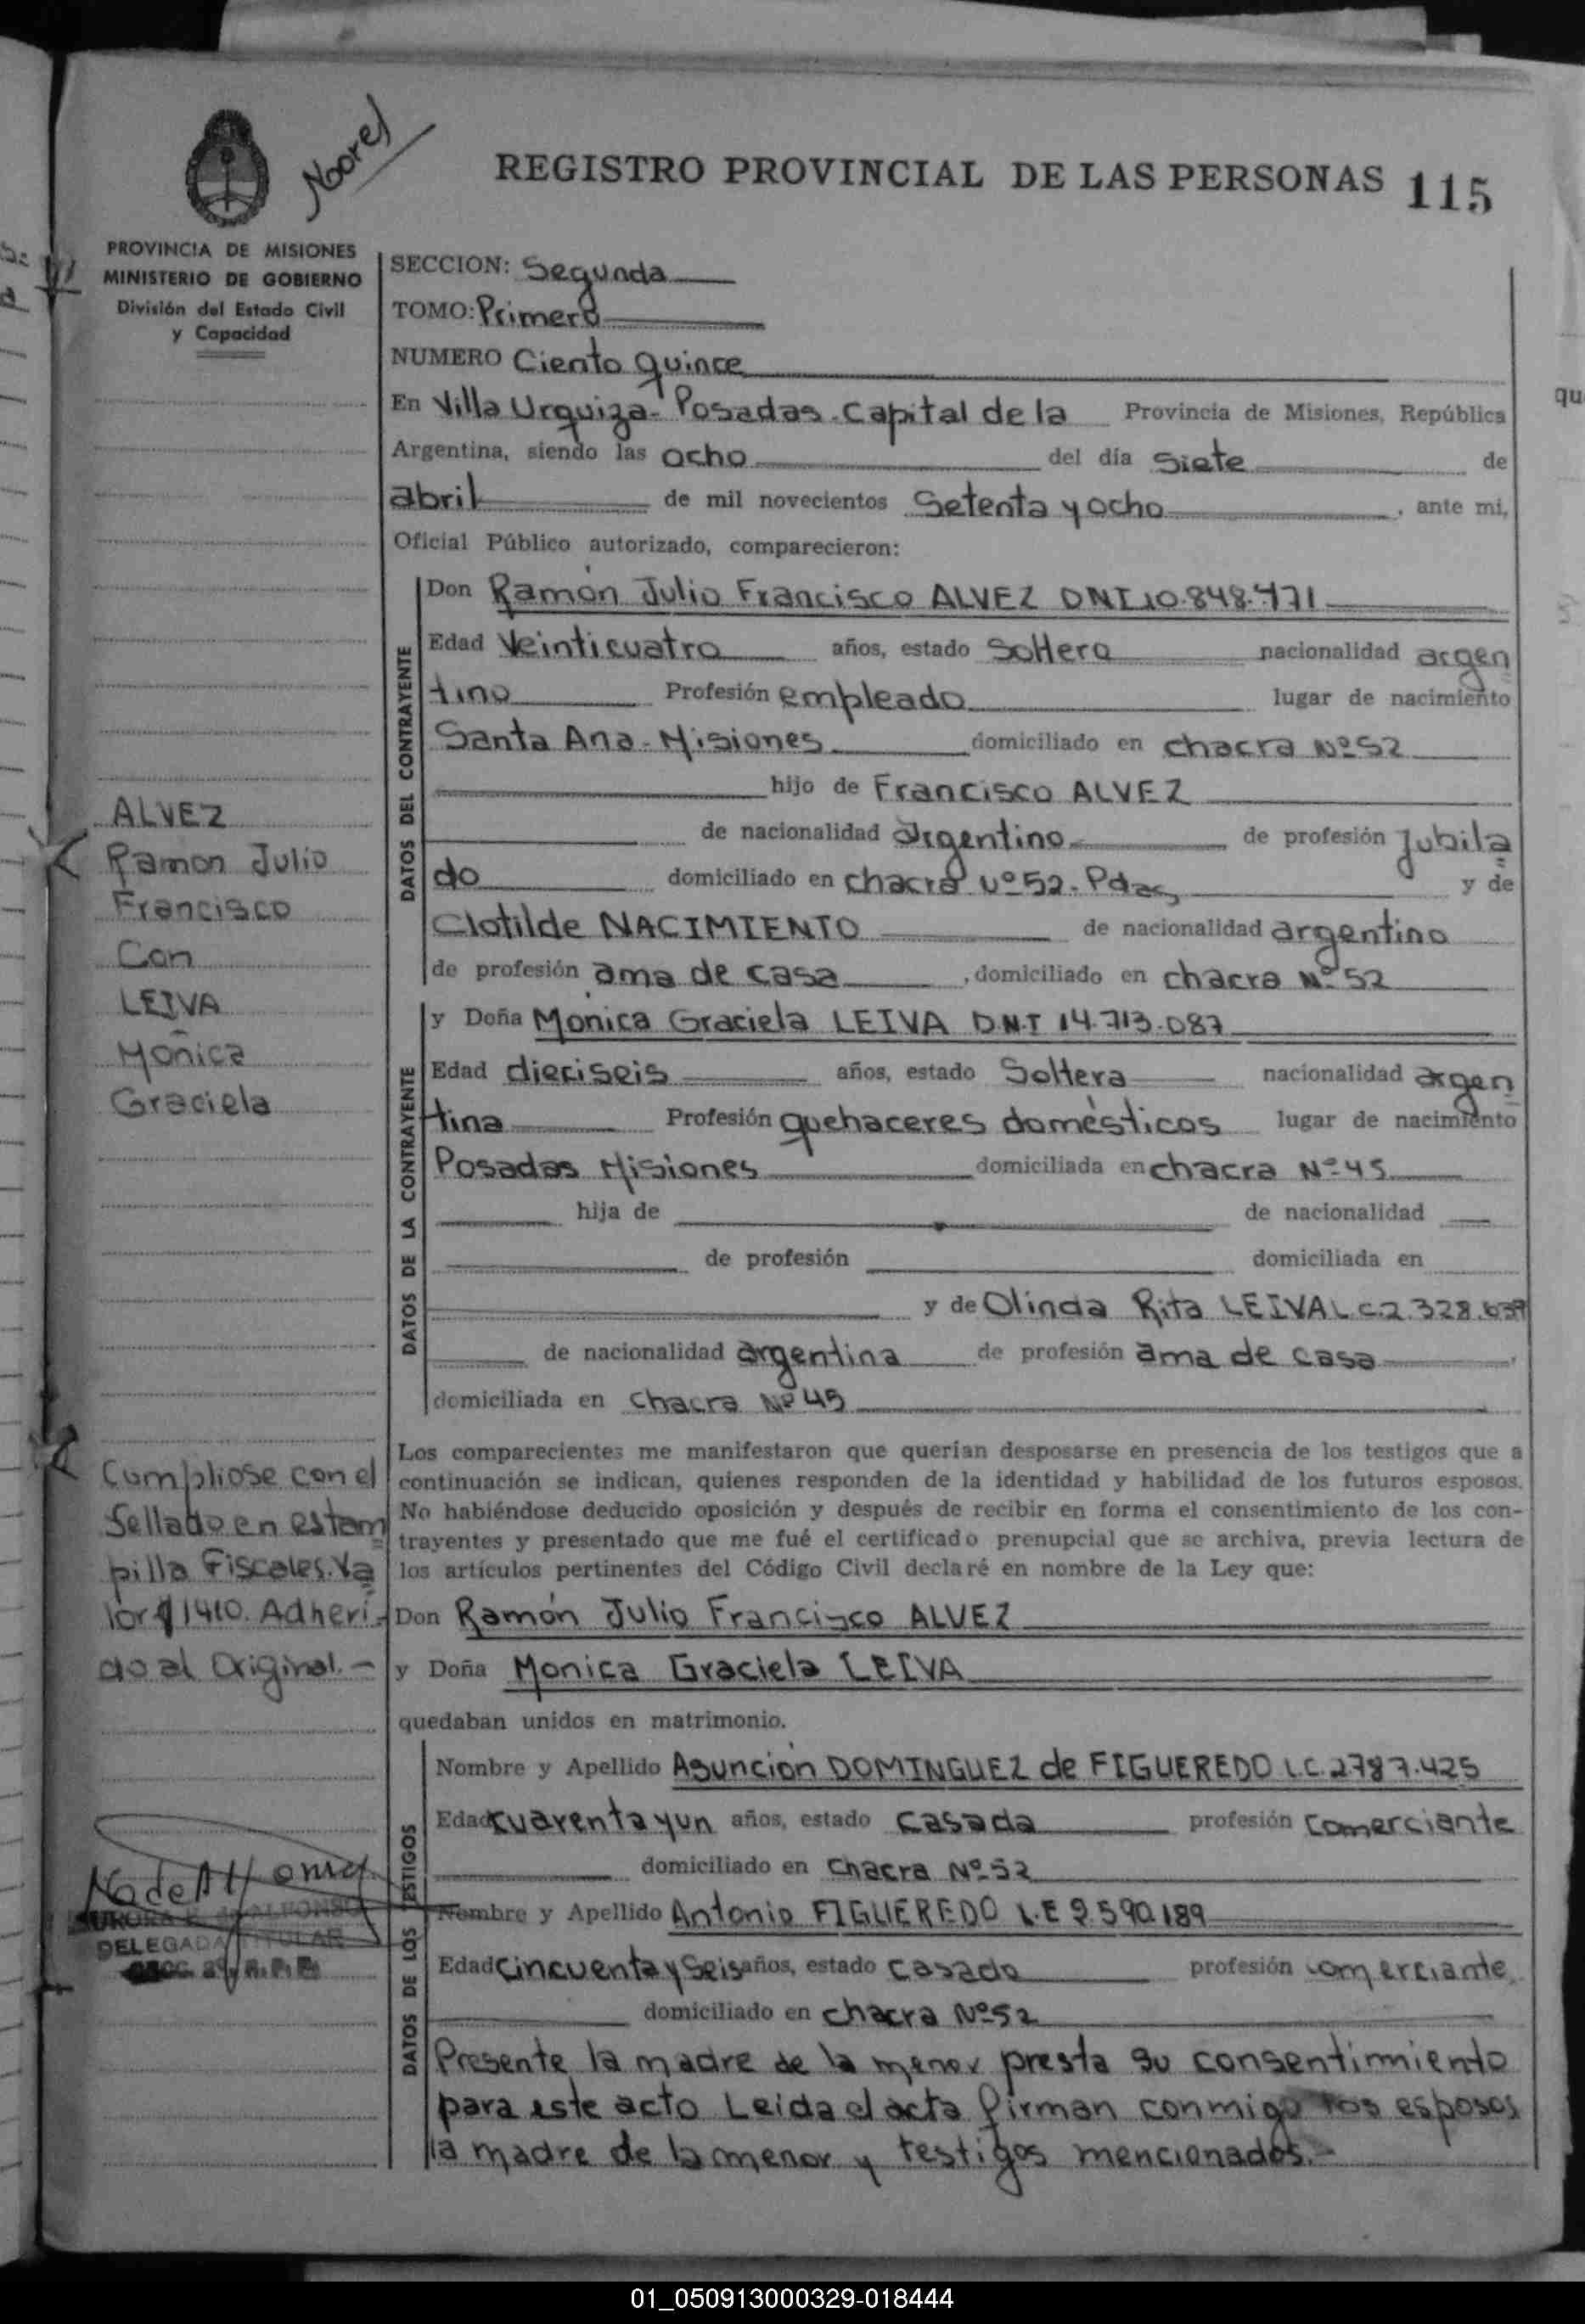 REGISTRO PROVINCIAL DE LAS PERSONAS 115
PROVINCIA DE MISIONES
MINISTERIO DE GOBIERNO
División del Estado Civil
y Capacidad
SECCION: Segunda
TOMO: Primero
NUMERO Ciento quince
En Villa Urquiza - Posadas - Capital de la Provincia de Misiones, República
Argentina, siendo las ocho del día siete de
abril de mil novecientos Setenta y ocho, ante mi,
Oficial Público autorizado, comparecieron:
DATOS DEL CONTRAYENTE
Don Ramón Julio Francisco ALVEZ DNI 10.848.471
Edad Veinticuatro años, estado Soltero nacionalidad argen
tino Profesión empleado lugar de nacimiento
Santa Ana - Misiones domiciliado en chacra Nº 52
hijo de Francisco ALVEZ
de nacionalidad argentino de profesión Jubila
do domiciliado en chacra Nº 52 - Pdas y de
Clotilde NACIMIENTO de nacionalidad argentino
de profesión ama de casa, domiciliado en chacra Nº 52
DATOS DE LA CONTRAYENTE
y Doña Monica Graciela LEIVA D.N.I 14.713.087
Edad dieciseis años, estado Soltera nacionalidad argen
tina Profesión quehaceres domésticos lugar de nacimiento
Posadas Misiones domiciliada en chacra Nº 45
hija de de nacionalidad
de profesión domiciliada en
y de Olinda Rita LEIVA L.C. 2.328.639
de nacionalidad argentina de profesión ama de casa,
domiciliada en chacra Nº 45
Los comparecientes me manifestaron que querían desposarse en presencia de los testigos que a
continuación se indican, quienes responden de la identidad y habilidad de los futuros esposos.
No habiéndose deducido oposición y después de recibir en forma el consentimiento de los con-
trayentes y presentado que me fué el certificado prenupcial que se archiva, previa lectura de
los artículos pertinentes del Código Civil declaré en nombre de la Ley que:
Don Ramón Julio Francisco ALVEZ
y Doña Monica Graciela LEIVA
quedaban unidos en matrimonio.
DATOS DE LOS TESTIGOS
Nombre y Apellido Asunción DOMINGUEZ de FIGUEREDO L.C. 2.787.425
Edad cuarenta y un años, estado casada profesión comerciante
domiciliado en chacra Nº 52
Nombre y Apellido Antonio FIGUEREDO L.E 2.590.189
Edad cincuenta y seis años, estado casado profesión comerciante
domiciliado en chacra Nº 52
Presente la madre de la menor presta su consentimiento
para este acto Leida el acta firman conmigo los esposos
la madre de la menor y testigos mencionados.-
ALVEZ
Ramon Julio
Francisco
Con
LEIVA
Monica
Graciela
Cumpliose con el
Sellado en estam
pilla Fiscales. Va
lor $ 1410. Adheri-
do al Original.-
DELEGADA TITULAR
01_050913000329-018444